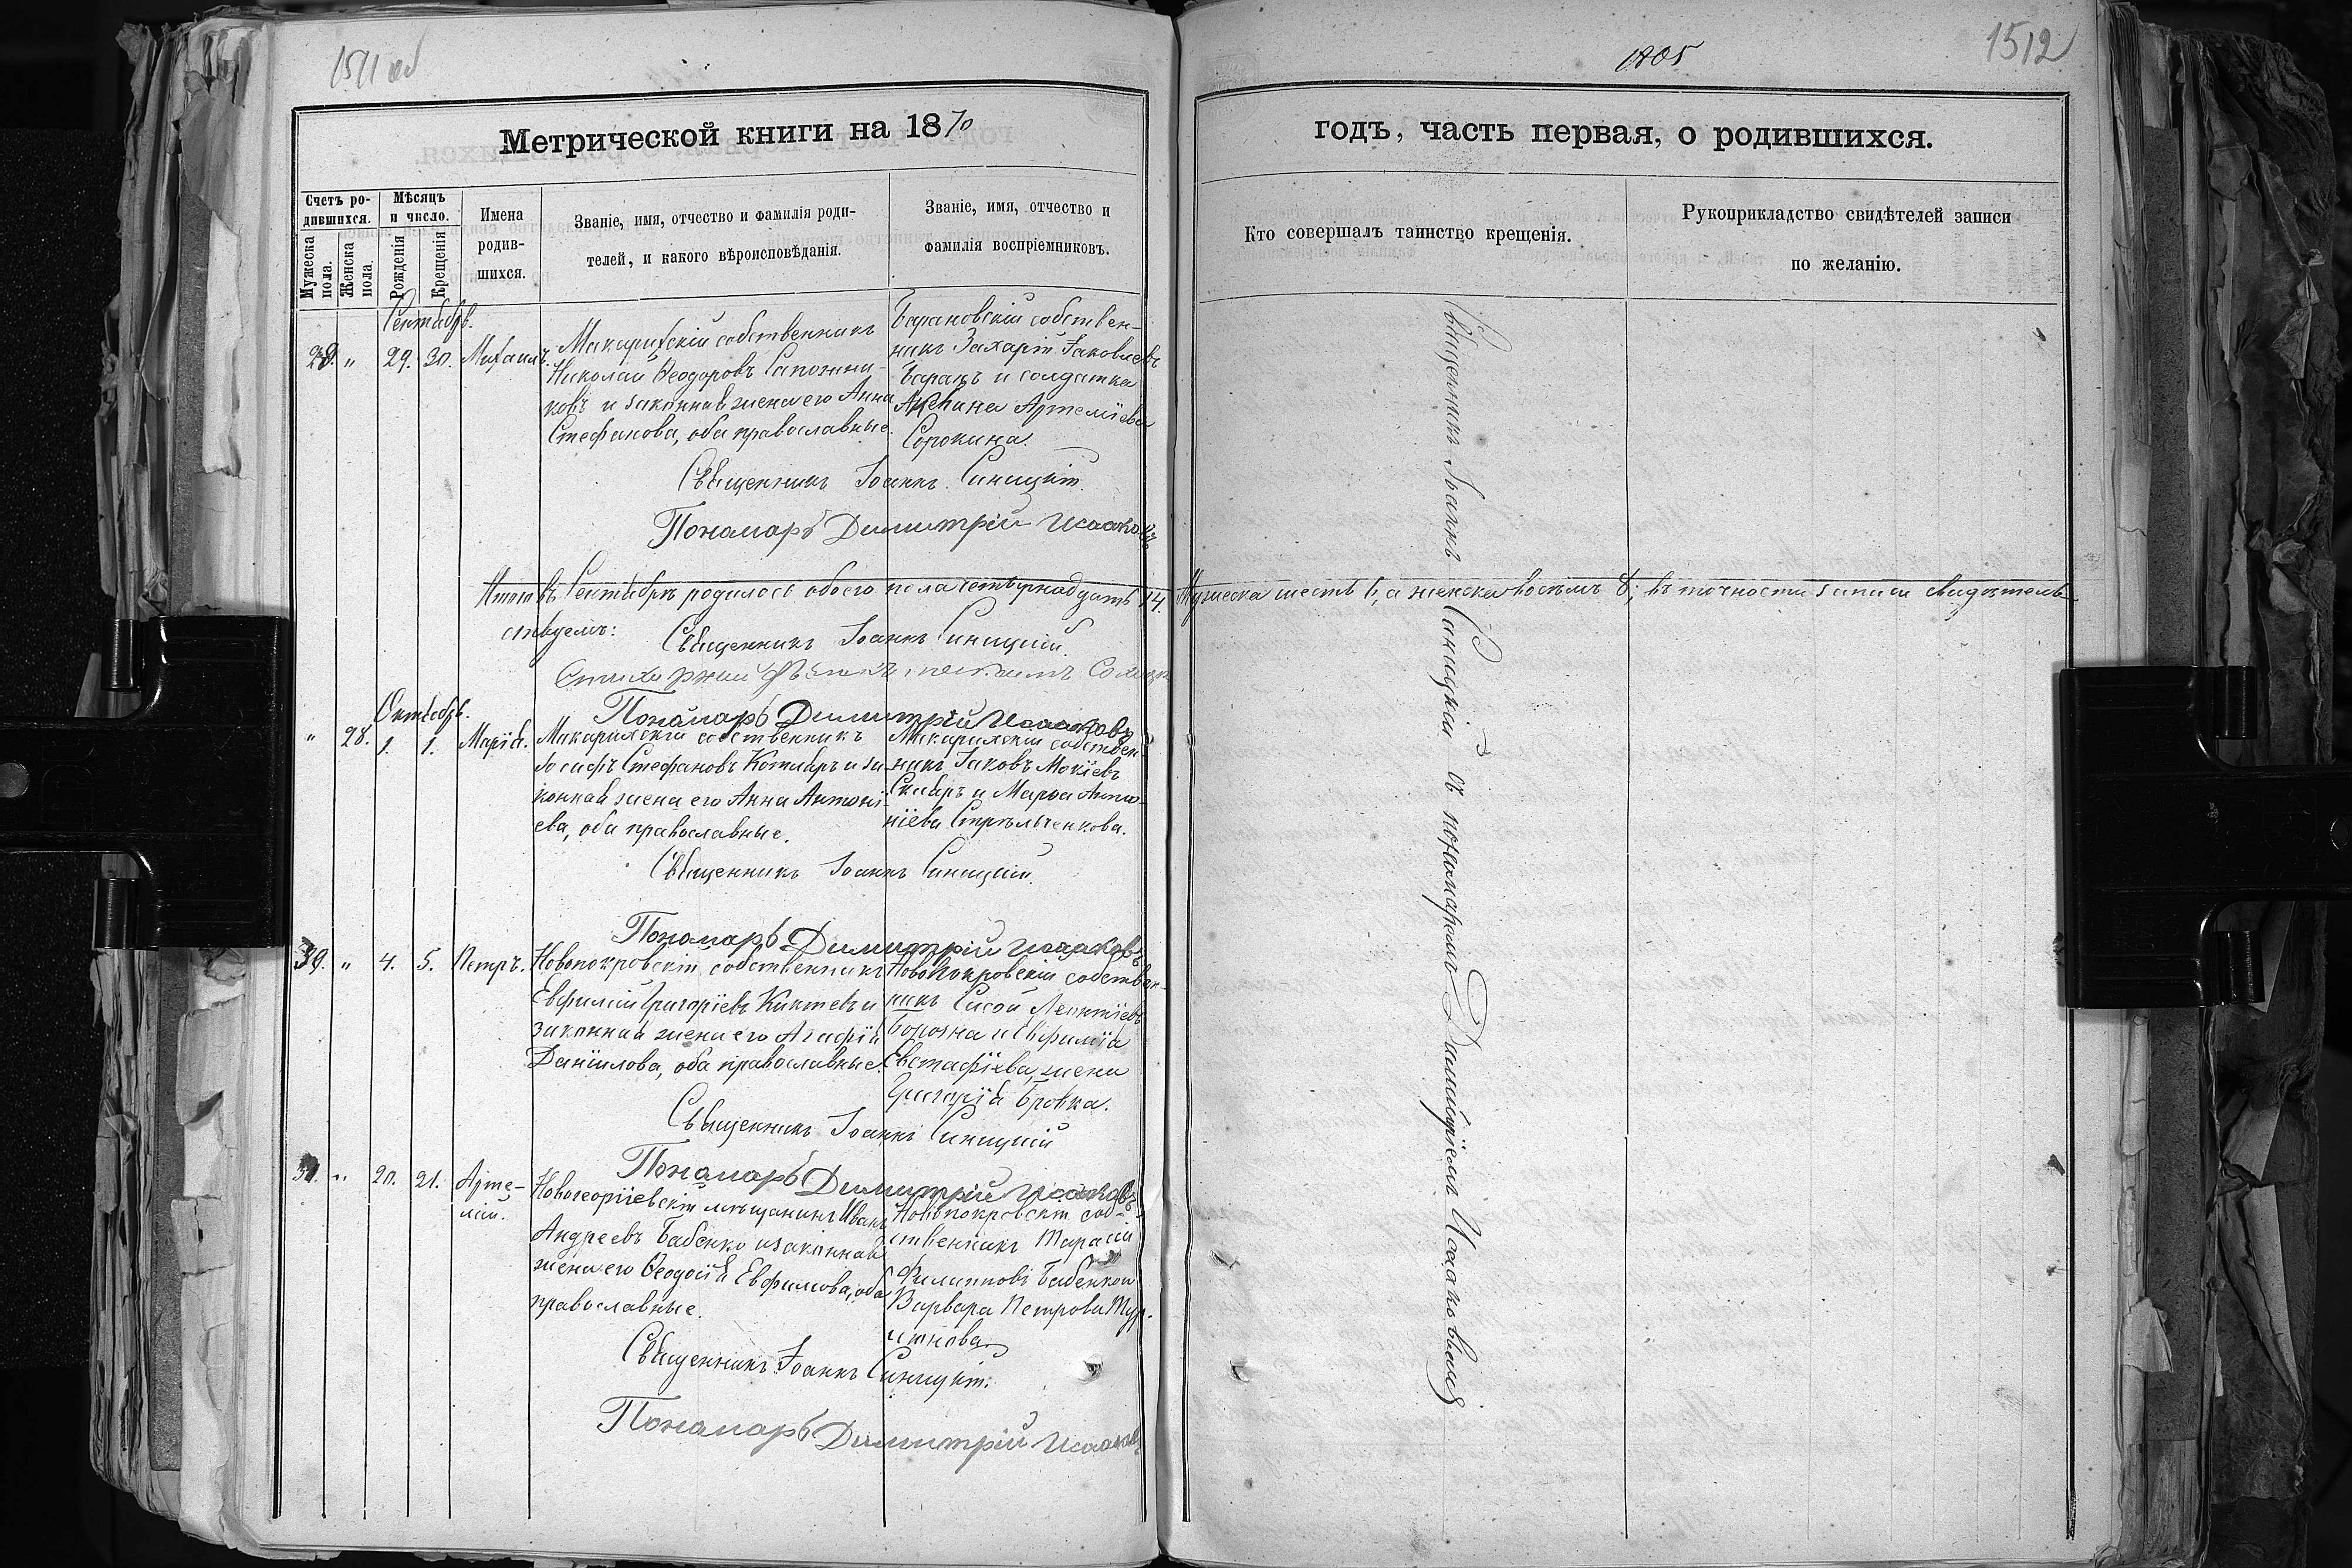 1511 об
Метрической книги на 1870
Счетъ ро-
дившихся.
Мужеска
пола.
Женска
пола.
Мѣсяцъ
и число.
Рожденія
Крещенія
Имена
родив-
шихся.
Званіе, имя, отчество и фамилія роди-
телей, и какого вѣроисповѣданія.
Званіе, имя, отчество и
фамилія воспріемниковъ.
Сентябрь.
29. 30. Михаилъ.
Макарихскій собственникъ
Николай Ѳеодоровъ Сапожни-
ковъ и законная жена его Анна
Стефанова, оба православные.
Барановскій собствен-
никъ Захарій Іаковлевъ
Баранъ и солдатка
Артеміева
Сорокина.
Священникъ Іоаннъ Синицкій.
Пономарь Димитрій Исааковъ
Итого въ Сентябрѣ родилось обоего пола четырнадцать 14. Мужеска шесть 6, а женска восемь 8; въ точности записи свидѣтель-
ствуемъ:
Священникъ Іоаннъ Синицкій.
Пономарь Димитрій Исааковъ
Октябрь.
" 28. 1. 1. Марія.
Макарихскій собственникъ
Іосифъ Стефановъ Котляръ и за-
конная жена его Анна Антоні-
ева, оба православные.
Макарихскій собствен-
никъ Іаковъ Мокіевъ
Скляръ и Марѳа Анто-
ніева Стрѣльченкова.
Священникъ Іоаннъ Синицкій.
Пономарь Димитрій Исааковъ
30. " 4. 5. Петръ.
Новопокровскій собственникъ
Евфимій Григоріевъ Киктевъ и
законная жена его Агафія
Даніилова, оба православные.
Новопокровскій собствен-
никъ Сисой Леонтіевъ
и Евфимія
Евстафіева, жена
Григорія Бровка.
Священникъ Іоаннъ Синицкій
Пономарь Димитрій Исааковъ
31. " 20. 21. Арте-
мій.
Новогеоргіевскій мѣщанинъ Иванъ
Андреевъ Бабенко и законная
жена его Ѳеодосія Евфимова, оба
православные.
Новопокровскій соб-
ственникъ Тарасій
Филипповъ Бабенко и
Варвара Петрова
Священникъ Іоаннъ Синицкій.
Пономарь Димитрій Исааковъ
1805
1512
годъ, часть первая, о родившихся.
Кто совершалъ таинство крещенія.
Рукоприкладство свидѣтелей записи
по желанію.
Священникъ Іоаннъ Синицкій съ пономаремъ Димитріемъ Исааковымъ